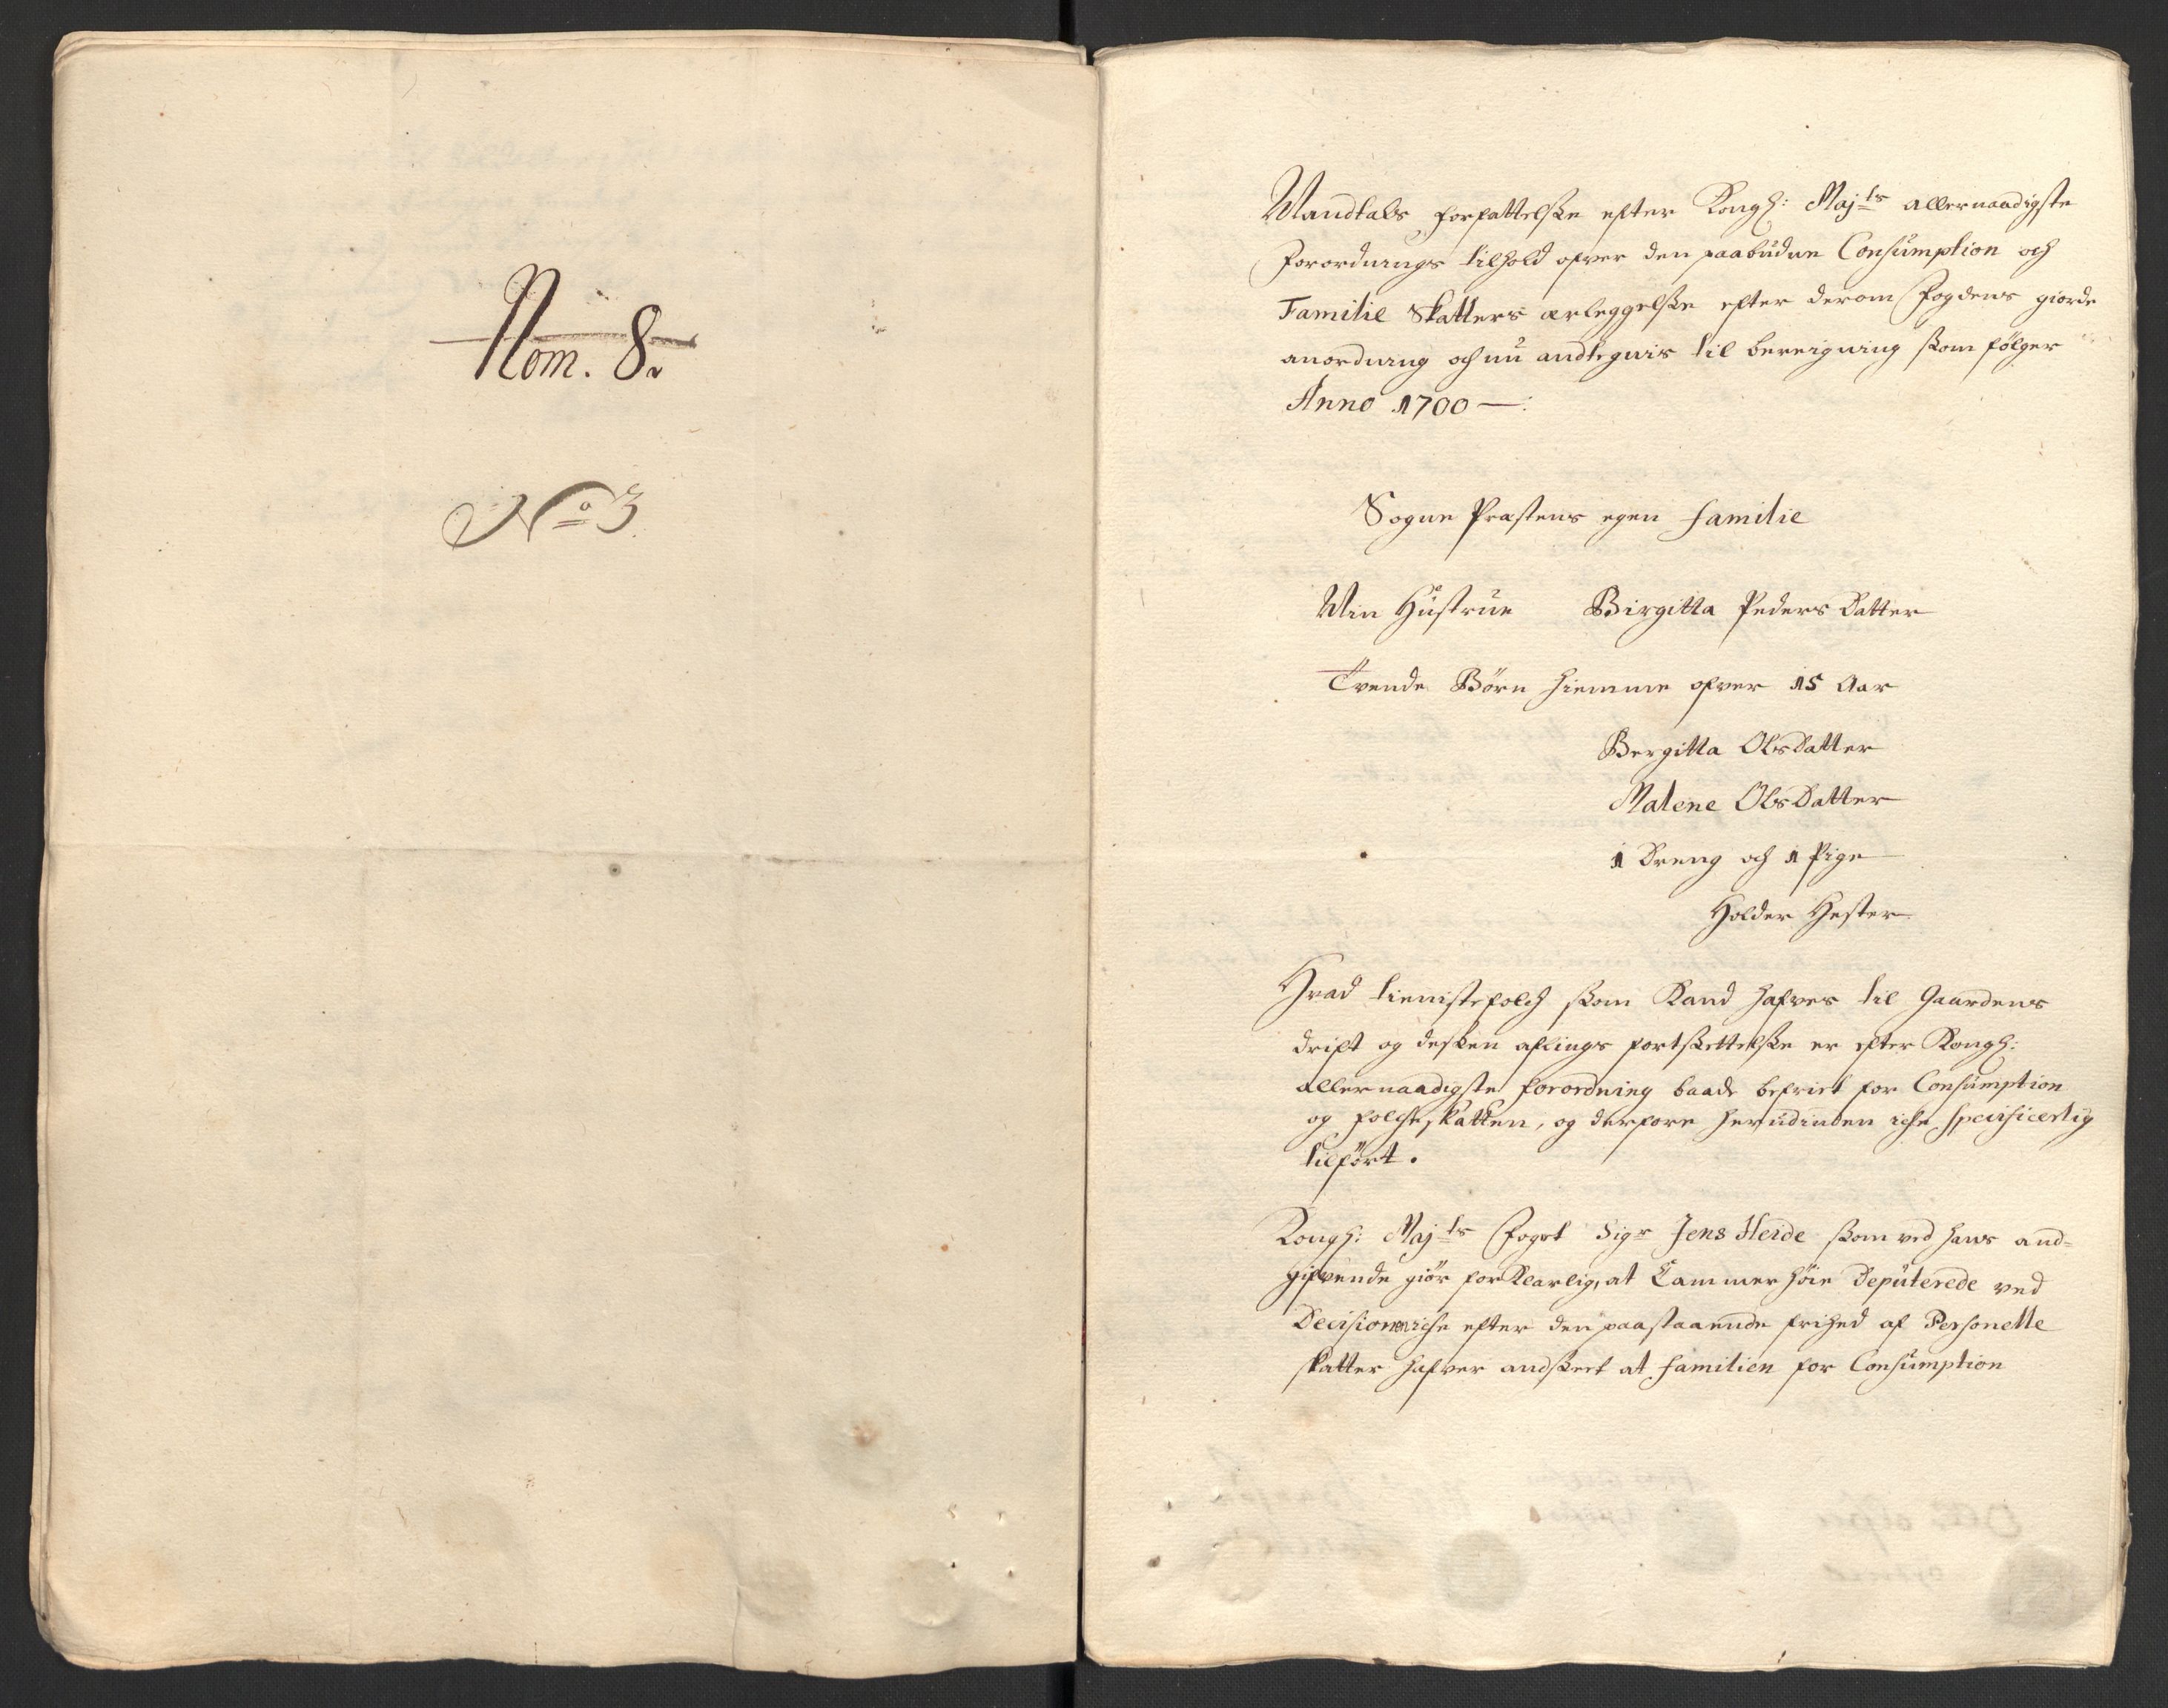 Nom. 8.
No 3.
Mandtals forfattelse efter Kongl: Majts allernaadigste
forordnings tilhold ofver den paabudne Consumption och
Familie Skatters erleggelse efter derom fogdens giorde
anordning och nu andtegnis til beregning som følger
Anno 1700 —:
Sogne Præstens egen familie
Min Hustrue Birgitta Peders datter
Tvende Børn hiemme ofver 15 Aar
Bergitta Olsdatter
Malene Olsdatter
1 Dreng och 1 Pige
Holder Hester
Hvad tienistefolch som kand hafves til Gaardens
drift og desken aflings fortsettelse er efter Kongl:
allernaadigste forordning baade befriet for Consumption
og folcheskatten, og derfore herudinden iche specificerlig
tilført.
Kongl: Majts foget Sigr Jens Heide som ved hans and-
gifvende giør forklarlig, at Cammer høie Deputerede ved
Decisionen iche efter den paastaaende frihed af Personelle
skatter hafver andseet at familien for Consumption